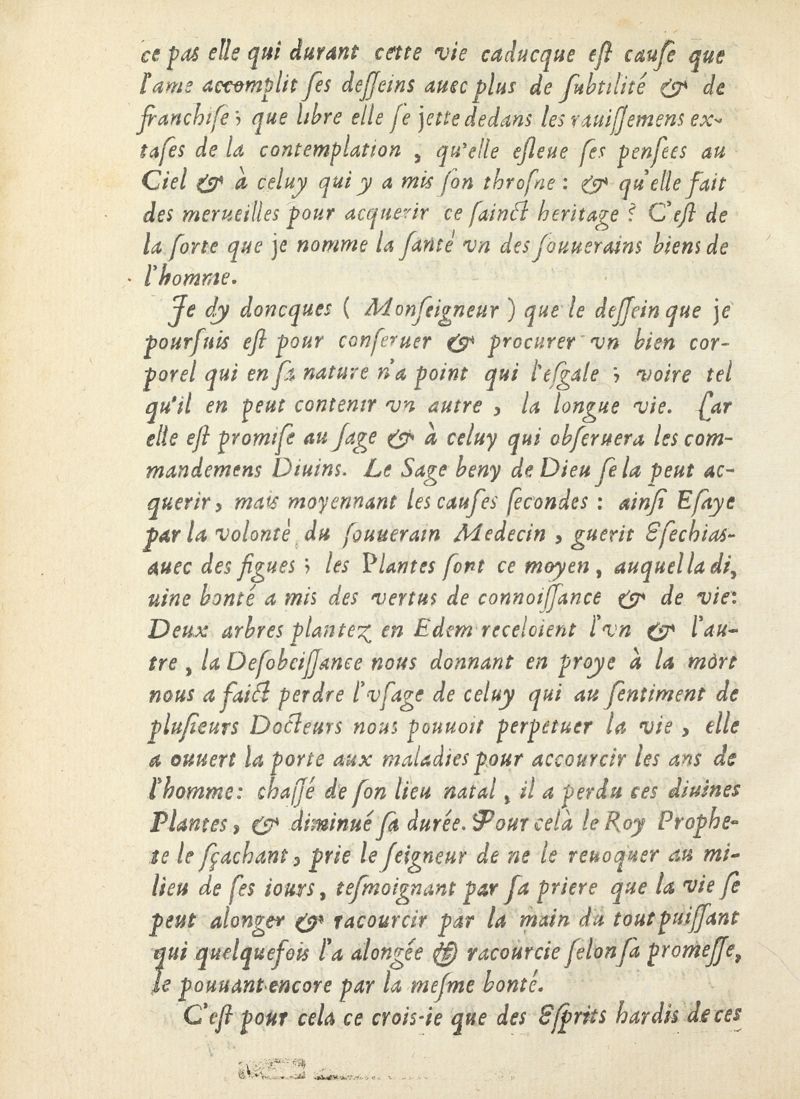 ce pas elle qui durant cette vie caducque eſt cauſe que
l'ame accomplit ſes deſſeins auec plus de ſubtilité & de
franchiſe; que libre elle ſe jette dedans les rauiſſemens ex-
taſes de la contemplation, qu'elle eſleue ſes penſees au
Ciel & à celuy qui y a mis ſon throſne: & qu'elle fait
des merueilles pour acquerir ce ſainct heritage? C'eſt de
la ſorte que je nomme la ſanté vn des ſouuerains biens de
l'homme.
Je dy doncques (Monſeigneur) que le deſſein que je
pourſuis eſt pour conſeruer & procurer vn bien cor-
porel qui en ſa nature n'a point qui l'eſgale; voire tel
qu'il en peut contenir vn autre, la longue vie. Car
elle eſt promiſe au ſage & à celuy qui obſeruera les com-
mandemens Diuins. Le Sage beny de Dieu ſe la peut ac-
querir, mais moyennant les cauſes ſecondes: ainſi Eſaye
par la volonté du ſouuerain Medecin, guerit Eſechias-
auec des figues; les Plantes ſont ce moyen, auquel la di,
uine bonté a mis des vertus de connoiſſance & de vie:
Deux arbres plantez en Edem receloient l'vn & l'au-
tre, la Deſobeiſſance nous donnant en proye à la mort
nous a faict perdre l'vſage de celuy qui au ſentiment de
pluſieurs Docteurs nous pouuoit perpetuer la vie, elle
a ouuert la porte aux maladies pour accourcir les ans de
l'homme: chaſſé de ſon lieu natal, il a perdu ces diuines
Plantes, & diminué ſa durée. Pour celà le Roy Prophe-
te le ſçachant, prie le ſeigneur de ne le reuoquer au mi-
lieu de ſes iours, teſmoignant par ſa priere que la vie ſe
peut alonger & racourcir par la main du tout puiſſant
qui quelquefois l'a alongée & racourcie ſelon ſa promeſſe,
le pouuant encore par la meſme bonté.
C'eſt pour cela ce crois-ie que des Eſprits hardis de ces